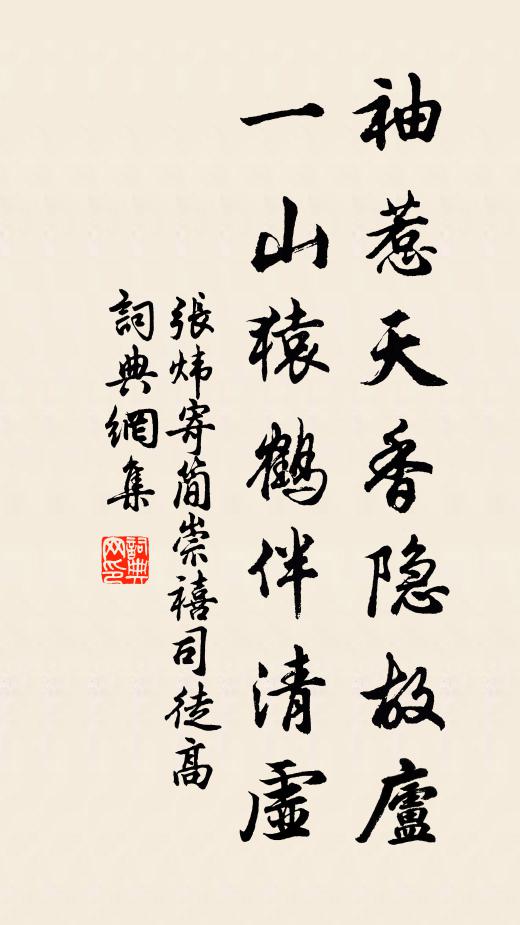 袖惹天香隐故廬
一山猿鶴伴清虛
張炜寄简崇禧司徒高
詞典網集
詞典网印